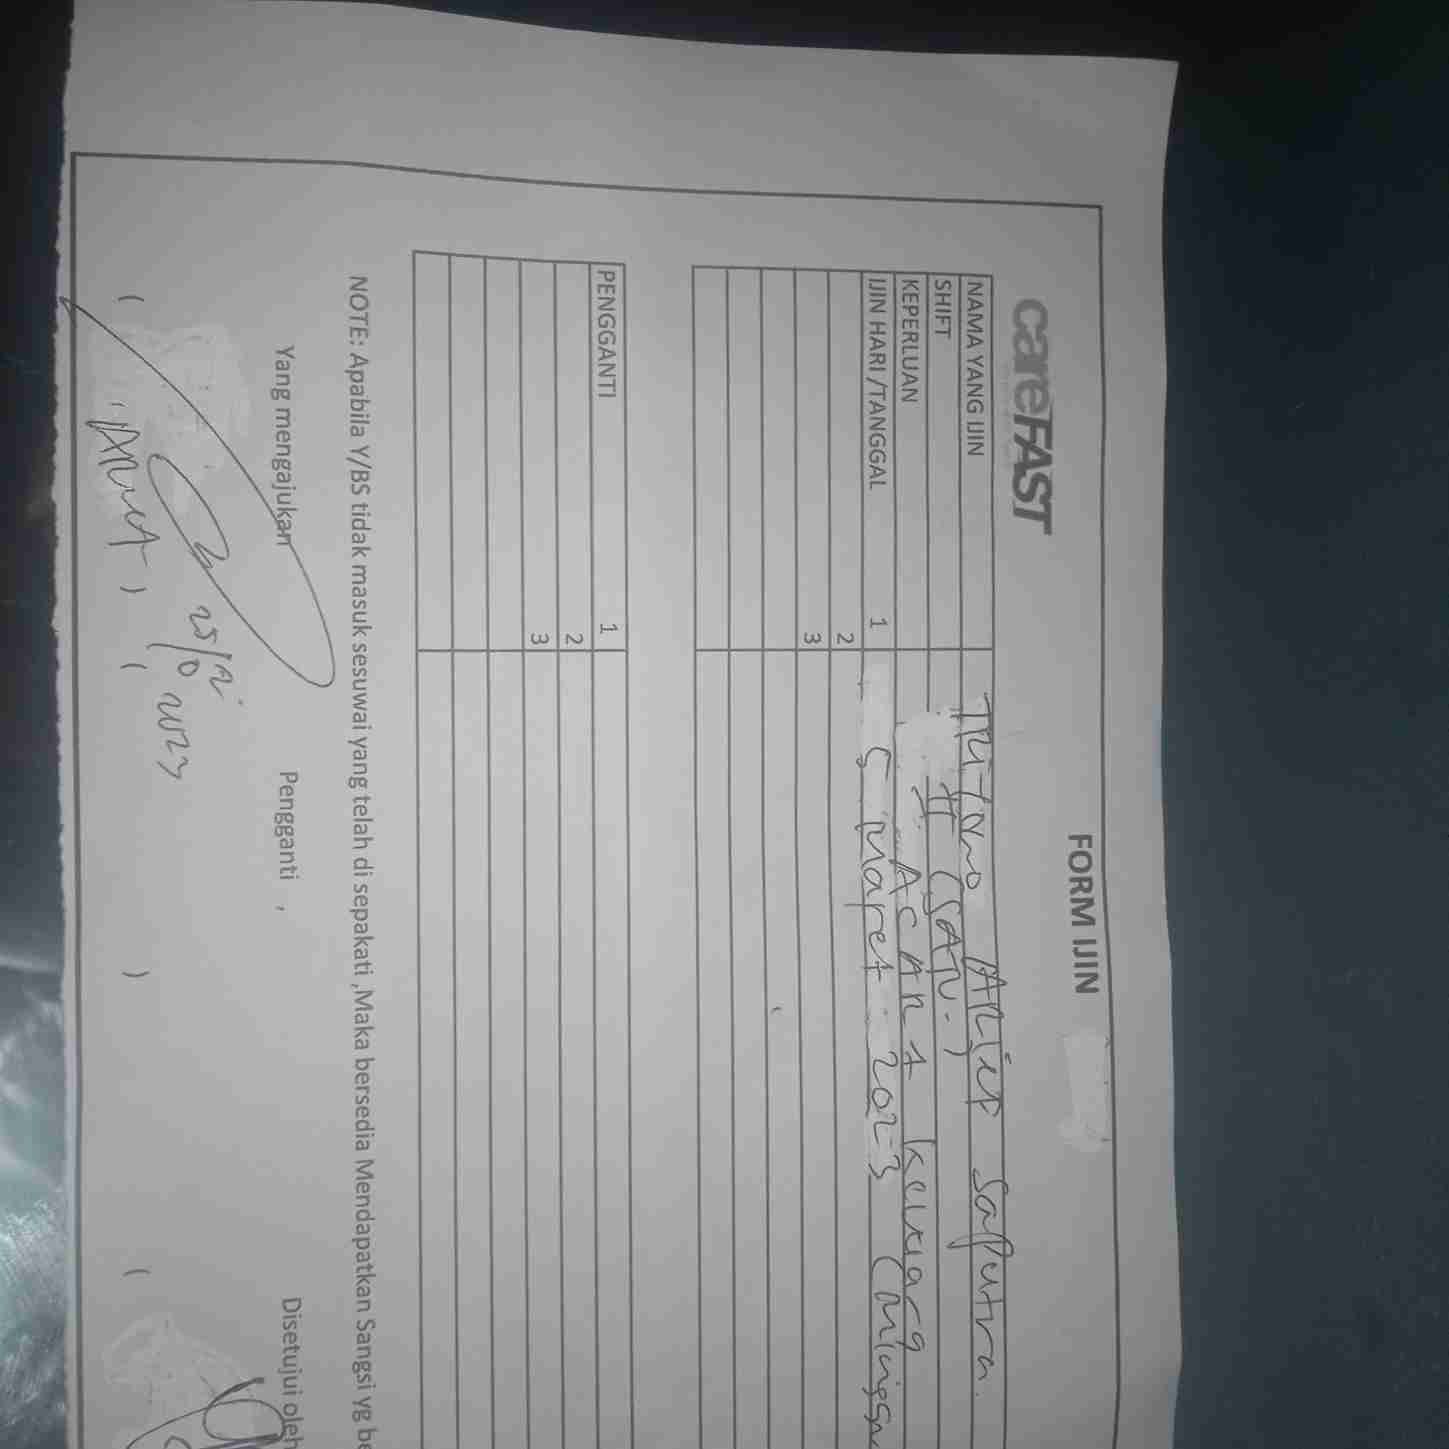 careFAST
FORM IJIN
NAMA YANG IJIN Tri tomo Arief Saputra.
SHIFT
KEPERLUAN ACARA keluarg
IJIN HARI /TANGGAL 1 5 Maret 2023 (Minggu
2
3
PENGGANTI 1
2
3
NOTE: Apabila Y/BS tidak masuk sesuwai yang telah di sepakati ,Maka bersedia Mendapatkan Sangsi yg be
Yang mengajukan Pengganti , Disetujui oleh
2023
( ) ( ) (